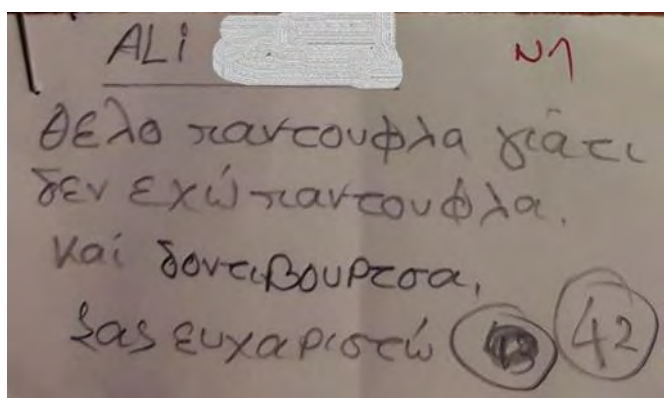 ALi N1
θελο παντουφλα γιατι
δεν εχώ παντουφλα.
και δοντιβουρτσα,
Σας ευχαριστώ 43 42